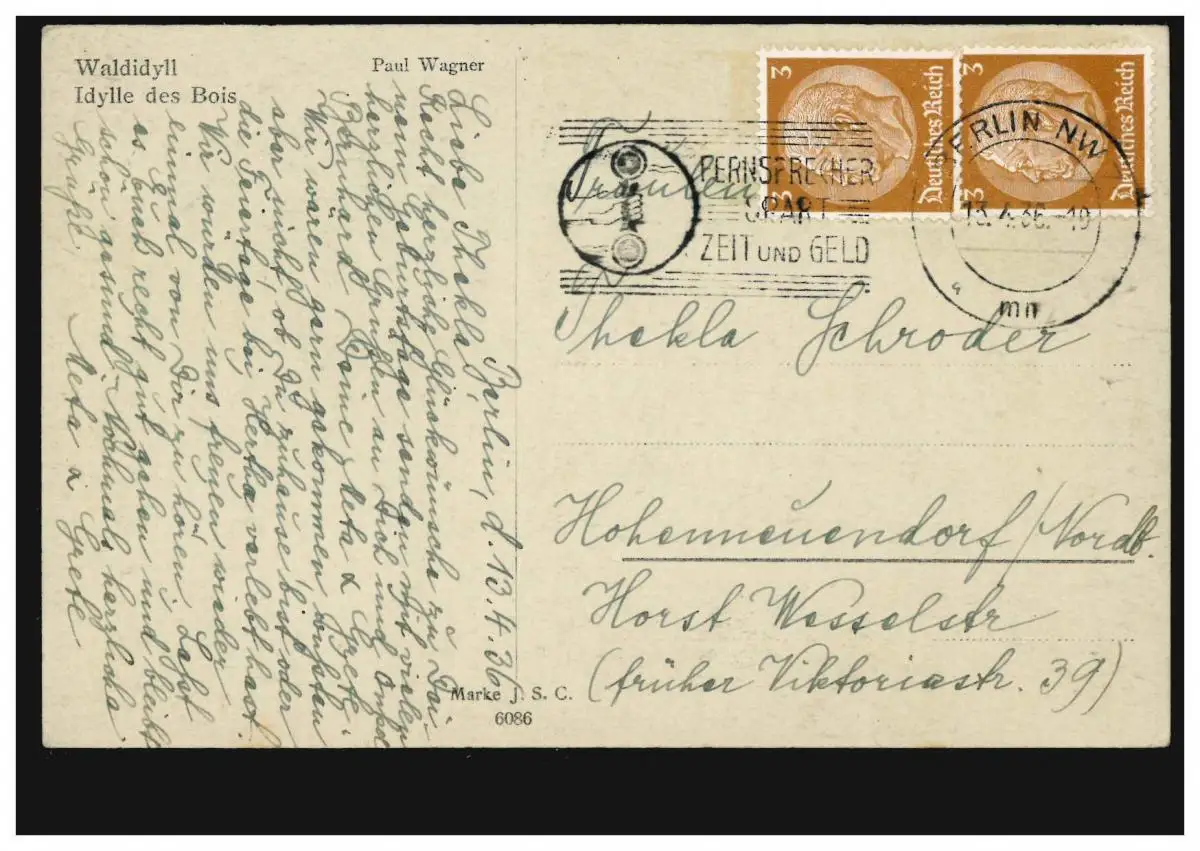 Waldidyll
Idylle des Bois
Paul Wagner
Berlin, d. 13.4.36
Liebe Thekla!
Recht herzliche Glückwünsche zu Dei-
nem Geburtstage senden mit vielen
herzlichen Grüßen an Dich und Onkel
Bernhard Deine Meta & Grete.
Wir wären gern gekommen, wußten
aber nicht, ob Du zuhause bist oder
die Feiertage bei Hertha verlebt hast.
Wir würden uns freuen wieder
einmal von Dir zu hören. Laßt
es Euch recht gut gehen und bleibt
schön gesund. Nochmals herzliche
Grüße. Meta & Grete
Marke J. S. C.
6086
3
3
Deutsches Reich
3
3
Deutsches Reich
FERNSPRECHER
SPART
ZEIT UND GELD
BERLIN NW
13.4.36.-19
mn
Fräulein
Thekla Schröder
Hohenneuendorf/Nordb.
Horst Wesselstr
(früher Viktoriastr. 39)